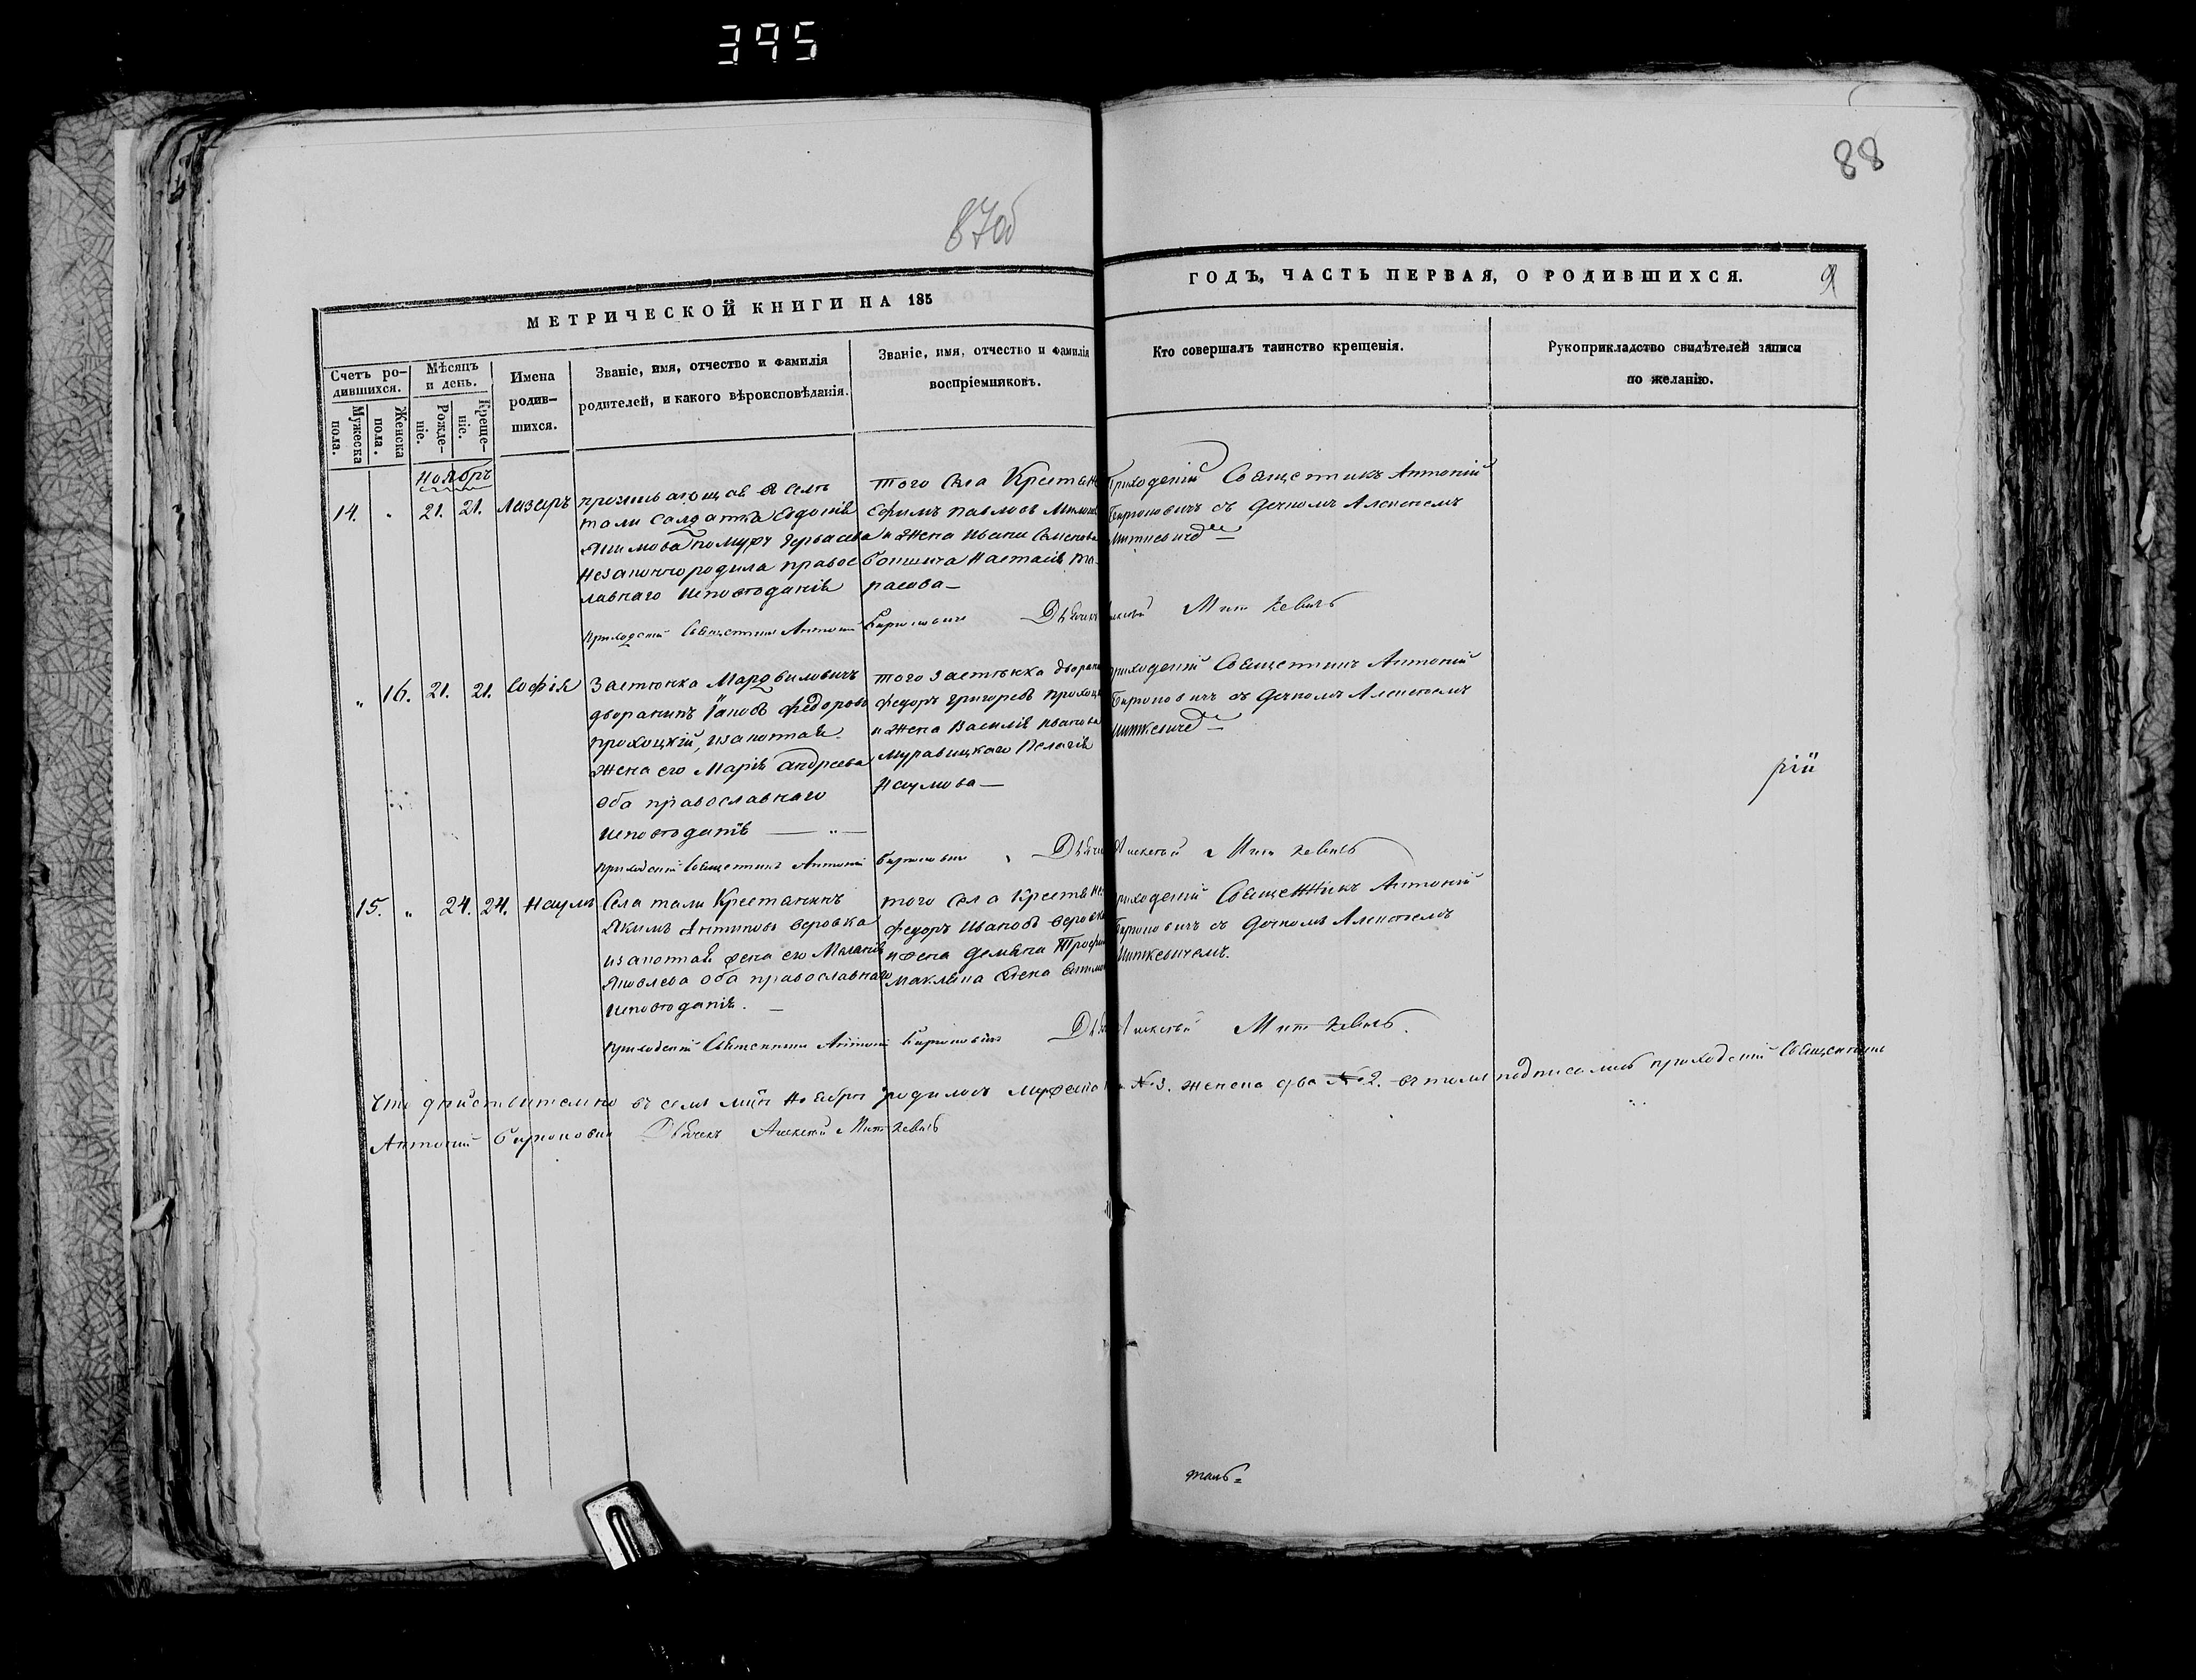 395
88
87об
МЕТРИЧЕСКОЙ КНИГИ НА 185
ГОДЪ, ЧАСТЬ ПЕРВАЯ, О РОДИВШИХСЯ.
9
Счетъ родившихся.
Мужеска пола.
Женска пола.
Мѣсяцъ и день.
Рожденіе.
Крещеніе.
Имена родившихся.
Званіе, имя, отчество и фамилія
родителей, и какого вѣроисповѣданія.
Званіе, имя, отчество и фамилія
воспріемниковъ.
Кто совершалъ таинство крещенія.
Рукоприкладство свидѣтелей записи
по желанію.
Ноябрь
14. " 21. 21. Лазарь
проживающая в селѣ
тали солдатка Евдокія
Якимова по мужу
незаконно родила правос
лавнаго исповѣданія
того села Крестьянинъ
Ефимъ Павловъ
и жена Ивана Семенова
Настасія Та-
расова—
Приходскій Священникъ Антоній
Бироновичъ съ дячкомъ Алексѣемъ
Миткевичемъ—
приходскій Священникъ Антоній Бироновичъ Дьячекъ Алексѣй Миткевичъ
" 16. 21. 21. Софія
Застѣнка Мардвиловичъ
дворанинъ Іановъ Федоровъ
Прохоцкій, и законная
жена его Марія Андреева
оба православнаго
исповѣданія — " —
того застѣнка дворанинъ
Федоръ Григоревъ Прохоцкій
и жена Василія Иванова
Муравицкаго Пелагія
Наумова—
Приходскій Священникъ Антоній
Бироновичъ съ дячкомъ Алексѣемъ
Миткевичемъ—
рій
приходскій Священникъ Антоній Бироновичъ Дьячекъ Алексѣй Миткевичъ
15. " 24. 24. Наумъ
Села тали Крестанинъ
Якимъ Антиповъ Веровка
и законная жена его Меланія
Яковлева оба православнаго
исповѣданія. —
того села Крестьянинъ
Федоръ Ивановъ Веровка
и жена Демяна
Приходскій Священникъ Антоній
Бироновичъ съ дячкомъ Алексѣемъ
Миткевичемъ.
приходскій Священникъ Антоній Бироновичъ Дьячекъ Алексѣй Миткевичъ.
Что дѣйствително въ семъ м҃цѣ Ноябрѣ родилось мужеска №3. женска два №2. въ томъ подписались приходскій Священникъ
Антоній Бироновичъ Дьячекъ Алексѣй Миткевичъ